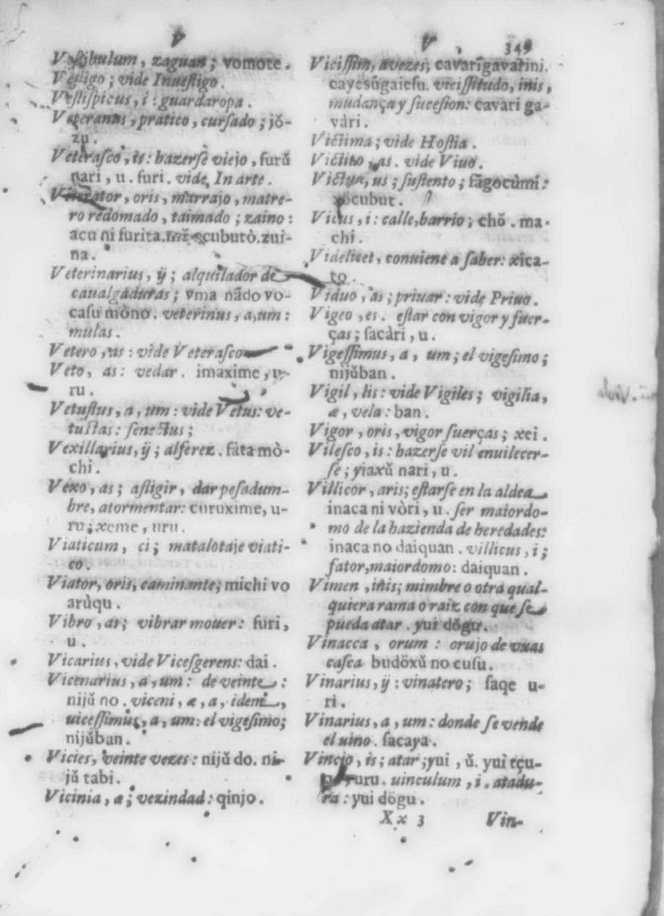 V V 349
Vestibulum, zaguan; vomote.
Vestigo; vide Inuestigo.
Vestispicus, i: guardaropa.
Veteranus, pratico, cursado; jŏ-
zu.
Veterasco, is: hazerse viejo, furŭ
nari, u. furi. vide In arte.
Veterator, oris, marrajo, matre-
ro redomado, taimado; zaino:
acu ni furita. scuburò. zui-
na.
Veterinarius, ÿ; alquilador de
caualgaduras; vma nădo vo-
casu mòno. veterinus, a, um:
mulas.
Vetero, as: vide Veterasco
Veto, as: vedar. imaxime, u-
ru.
Vetustus, a, um: vide Vetus: ve-
tustas: senectus;
Vexillarius, ÿ; alferez. fata mò-
chi.
Vexo, as; afligir, dar pesadum-
bre, atormentar: curuxime, u-
ru; xeme, uru.
Viaticum, ci; matalotaje viati-
co.
Viator, oris, caminante; michi vo
arùqu.
Vibro, as; vibrar mouer: furi,
u.
Vicarius, vide Vicesgerens: dai.
Vicenarius, a, um: de veinte:
nijŭ no. viceni, æ, a, idem,
uicessimus, a, um: el vigesimo;
nijŭban.
Vicies, veinte vezes: nijŭ do. ni-
jŭ tabi.
Vicinia, æ; vezindad: qinjo.
Vicissim, avezes; cavarigavarini.
cayesŭgaiesu. vicissitudo, inis,
mudança y sucesion: cavari ga-
vàri.
Victima; vide Hostia.
Victito, as. vide Viuo.
Victus, us; sustento; fàgocùmi:
xocubut.
Vicus, i: calle, barrio; chŏ. ma-
chi.
Videlicet, conuiene a saber: xica-
to.
Viduo, as; priuar: vide Priuo.
Vigeo, es. estar con vigor y fuer-
ças; sacàri, u.
Vigessimus, a, um; el vigesimo;
nijŭban.
Vigil, lis: vide Vigiles; vigilia,
æ, vela: ban.
Vigor, oris, vigor fuerças; xei.
Vilesco, is: hazerse vil enuilecer-
se; yiaxŭ nari, u.
Villicor, aris; estarse en la aldea
inaca ni vòri, u. ser maiordo-
mo de la hazienda de heredades:
inaca no daiquan. villicus, i;
fator, maiordomo: daiquan.
Vimen, inis; mimbre o otra qual-
quiera rama o raiz con que se
pueda atar. yui dŏgu.
Vinacca, orum: orujo de vuas
casca budŏxŭ no cusu.
Vinarius, ÿ: vinatero; saqe u-
ri.
Vinarius, a, um: donde se vende
el uino. sacaya.
Vincio, is; atar; yui, ŭ. yui tçu-
uru. uinculum, i. atadu-
ra: yui dŏgu.
Xx 3 Vin-